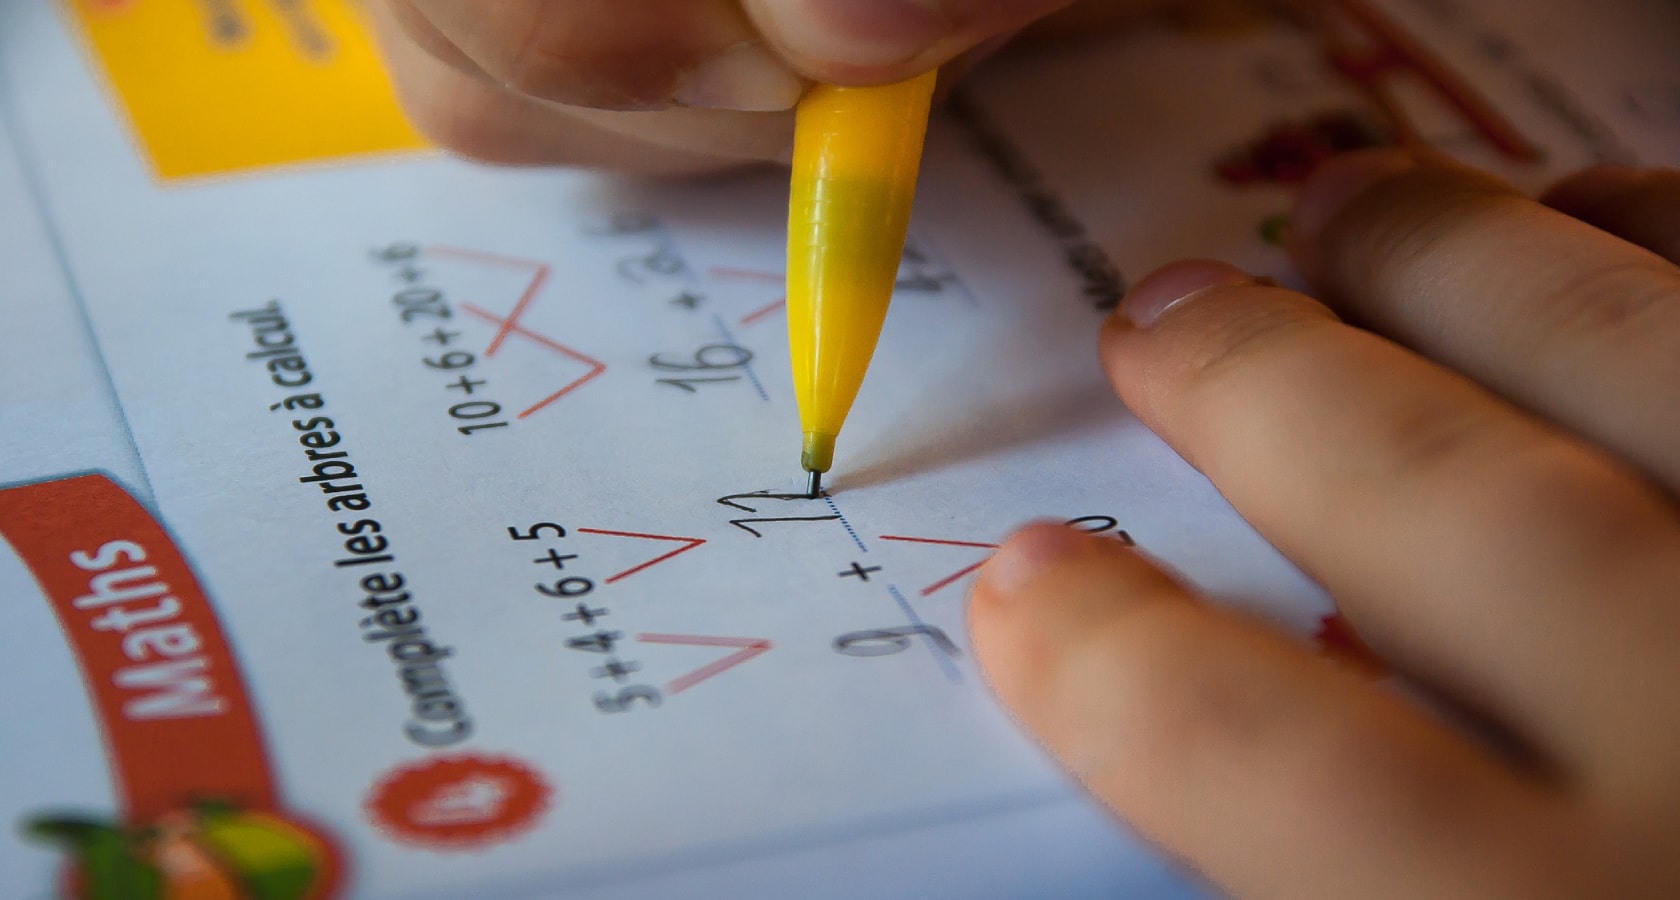 Maths
Complète les arbres à calcul.
5 + 4 + 6 + 5 10 + 6 + 20 + 6
9 + 11 16 + 26